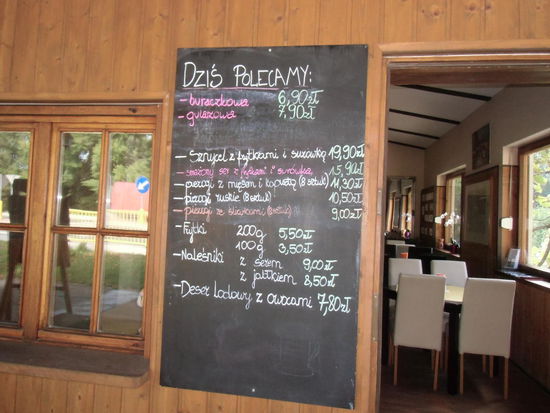 DZIŚ POLECAMY:
- buraczkowa 6,90zł
- gulaszowa 7,90zł
- Sznycel z frytkami i surówką 19,90zł
- smażony ser z frytkami i surówką 15,90zł
- pierogi z mięsem i kapustą (8 sztuk) 11,30zł
- pierogi ruskie (8 sztuk) 10,50zł
- pierogi ze (8 sztuk) 9,00zł
- Frytki 200g 5,50zł
100g 3,50zł
- Naleśniki z serem 9,00zł
z jabłkiem 8,50zł
- Deser Lodowy z owocami 7,80zł